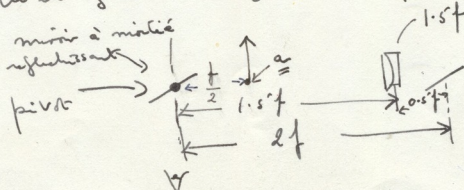 miroir à moitié
réfléchissant
pivot
f/2
a
1.5f
1.5f
0.5f
2f